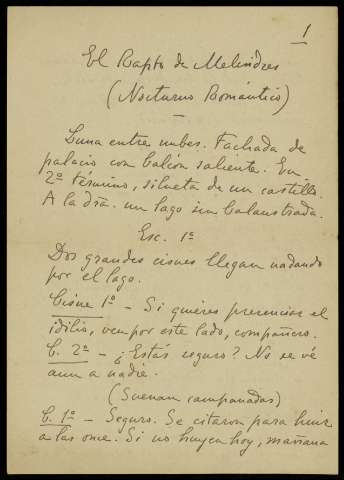 1
El Rapto de Melindres
(Nocturno Romántico)
Luna entre nubes. Fachada de
palacio con balcón saliente. En
2º término, silueta de un castillo.
A la dra. un lago sin balaustrada.
Esc. 1ª
Dos grandes cisnes llegan nadando
por el lago.
Cisne 1º - Si quieres presenciar el
idilio, ven por este lado, compañero.
C. 2º - ¿Estás seguro? No se vé
aun a nadie.
(Suenan campanadas)
C. 1º - Seguro. Se citaron para huir
a las once. Si no huyen hoy, mañana